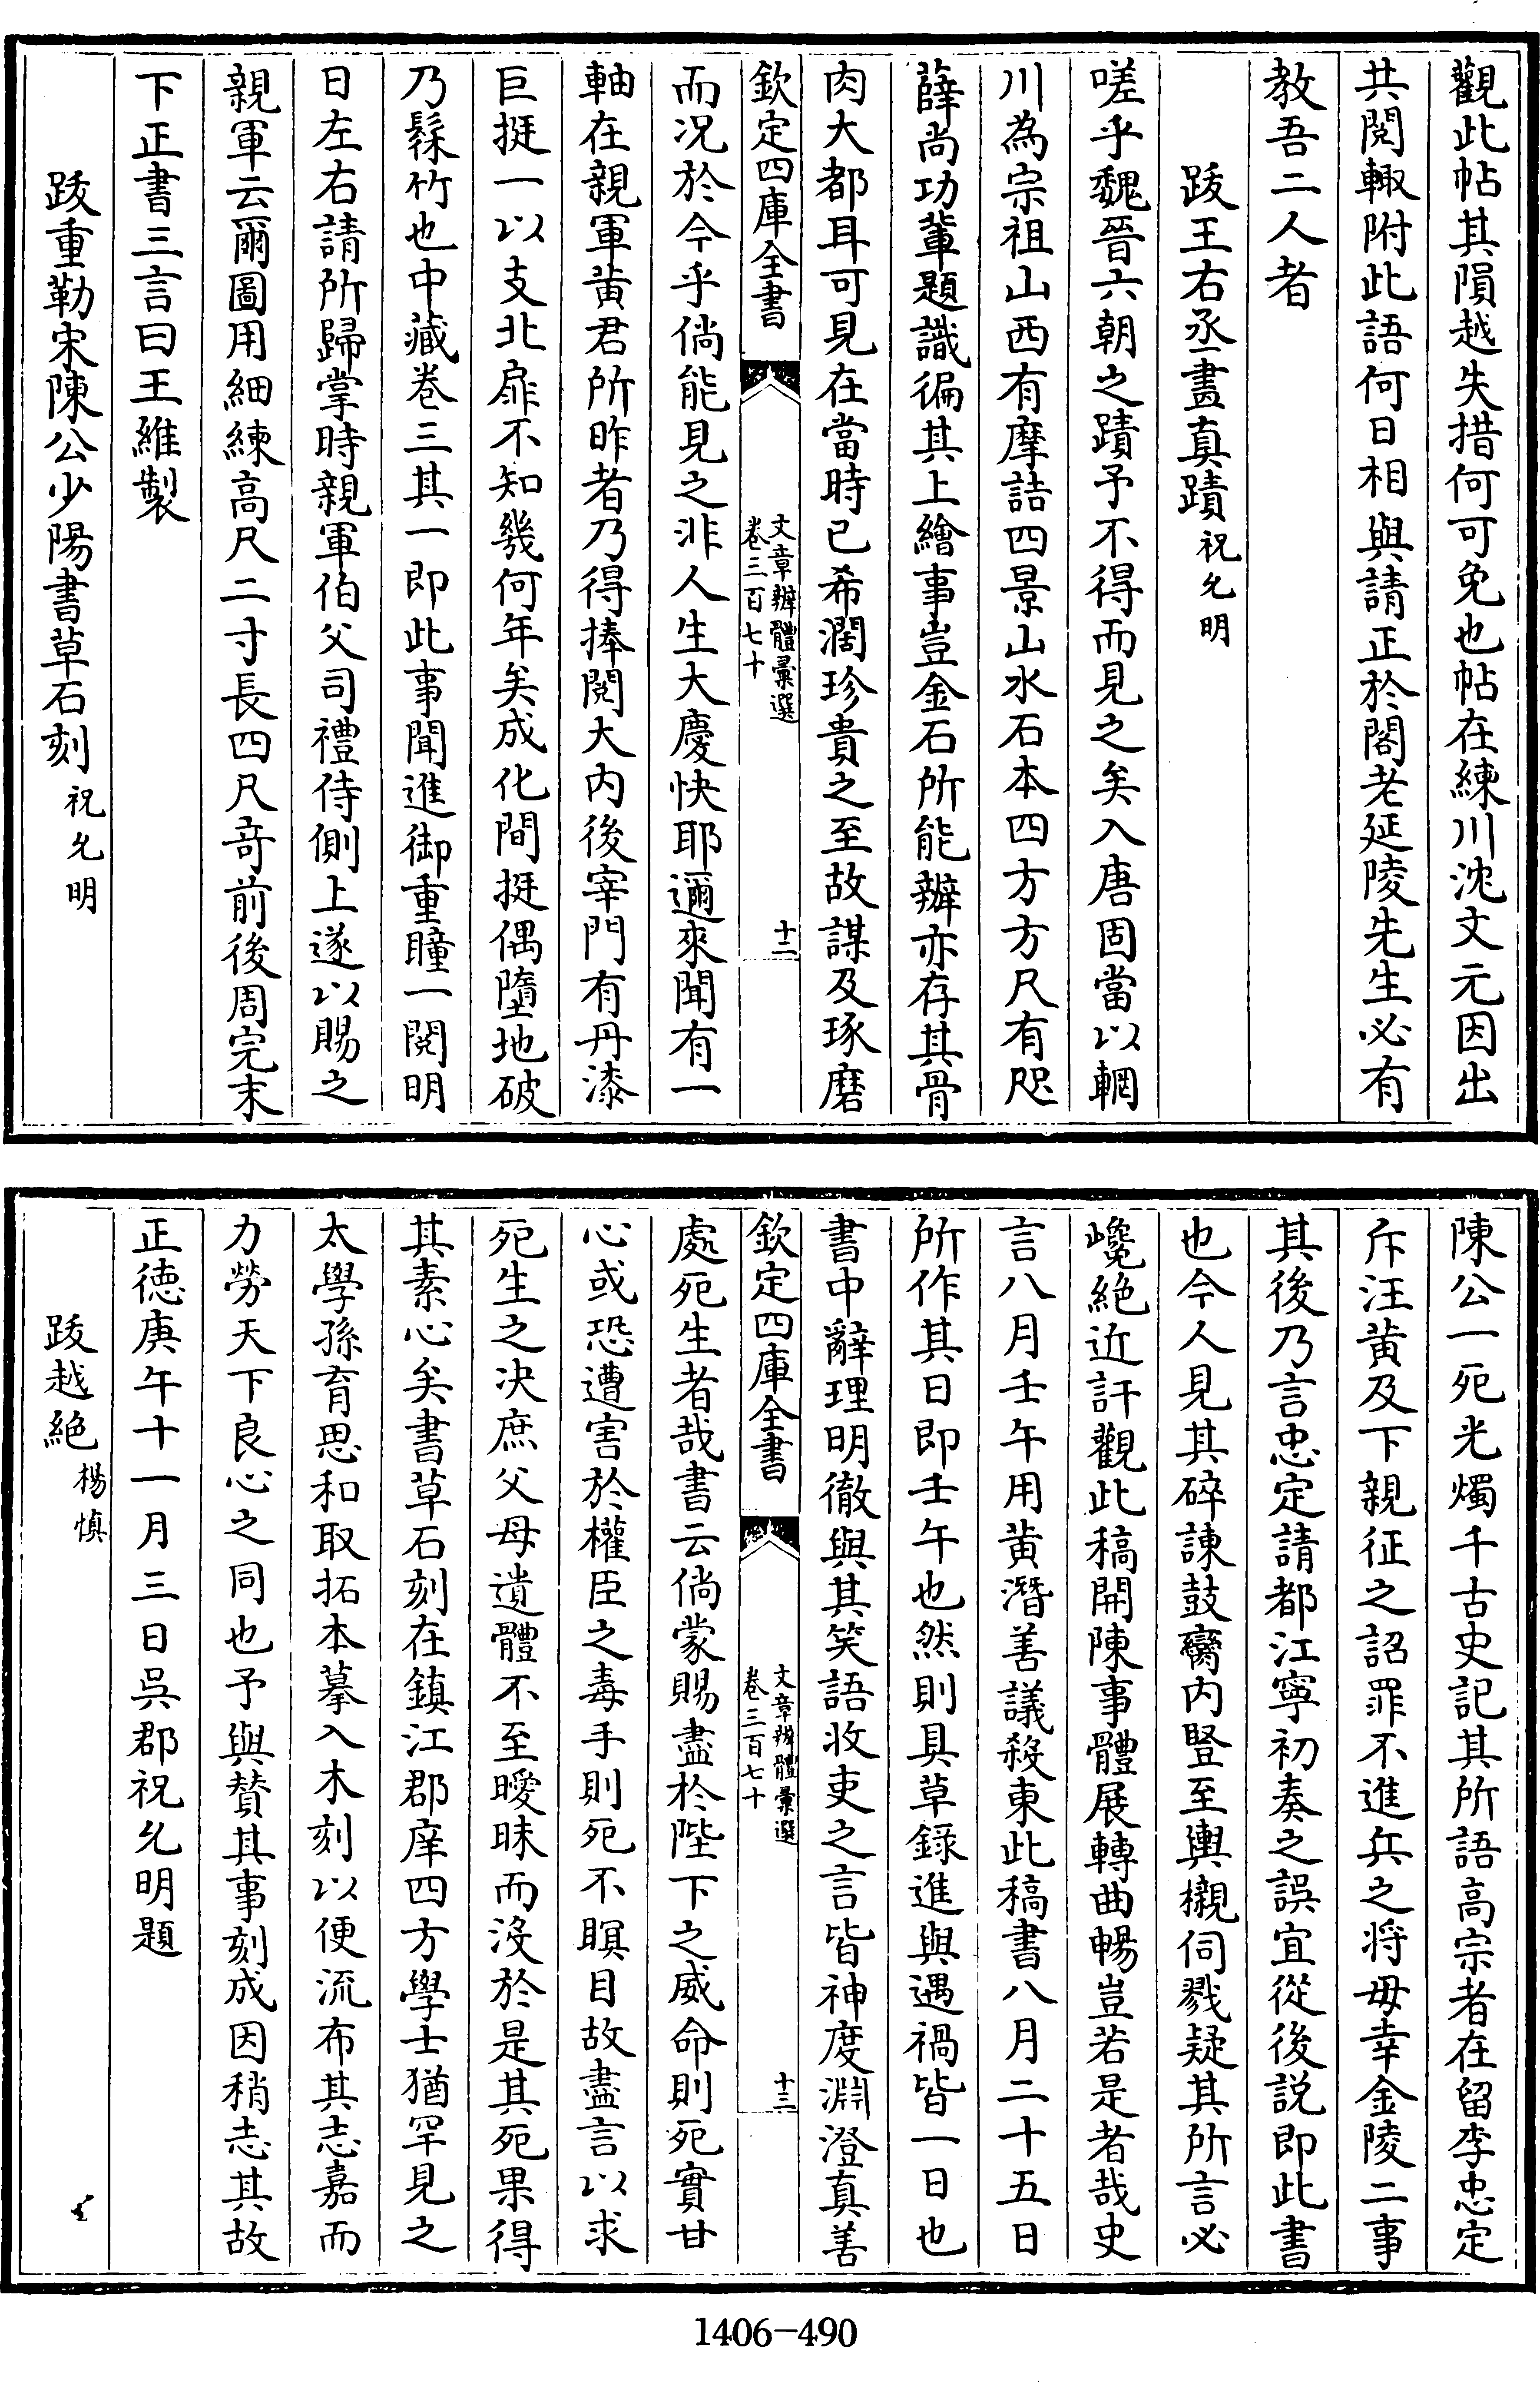 觀此帖其隕越失措何可免也帖在練川沈文元因出
共閱輙附此語何日相與請正於閣老延陵先生必有
教吾二人者
跋王右丞畫真蹟 祝允明
嗟乎魏晉六朝之蹟予不得而見之矣入唐固當以輞
川為宗祖山西有摩詰四景山水石本四方方尺有咫
薛尚功輩題識徧其上繪事豈金石所能辦亦存其骨
肉大都耳可見在當時已希濶珍貴之至故謀及琢磨
欽定四庫全書
文章辨體彙選
卷三百七十
十二
而况於今乎倘能見之非人生大慶快耶邇來聞有一
軸在親軍黄君所昨者乃得捧閱大内後宰門有丹漆
巨挺一以支北扉不知幾何年矣成化間挺偶墮地破
乃髹竹也中藏卷三其一即此事聞進御重瞳一閱明
日左右請所歸掌時親軍伯父司禮侍側上遂以賜之
親軍云爾圖用細練高尺二寸長四尺竒前後周完末
下正書三言曰王維製
跋重勒宋陳公少陽書草石刻 祝允明
陳公一死光燭千古史記其所語高宗者在留李忠定
斥汪黄及下親征之詔罪不進兵之将毋幸金陵二事
其後乃言忠定請都江寧初奏之誤宜從後説即此書
也今人見其碎諫鼓臠内豎至輿櫬伺戮疑其所言必
巉絶近訐觀此稿開陳事體展轉曲暢豈若是者哉史
言八月壬午用黄潛善議殺東此稿書八月二十五日
所作其日即壬午也然則具草録進與遇禍皆一日也
書中辭理明徹與其笑語收吏之言皆神度淵澄真善
欽定四庫全書
文章辨體彙選
卷三百七十
十三
處死生者哉書云倘蒙賜盡於陛下之威命則死實甘
心或恐遭害於權臣之毒手則死不瞑目故盡言以求
死生之决庶父母遺體不至曖昧而沒於是其死果得
其素心矣書草石刻在鎮江郡庠四方學士猶罕見之
太學孫育思和取拓本摹入木刻以便流布其志嘉而
力勞天下良心之同也予與賛其事刻成因稍志其故
正徳庚午十一月三日吳郡祝允明題
跋越絶 楊慎
1406-490